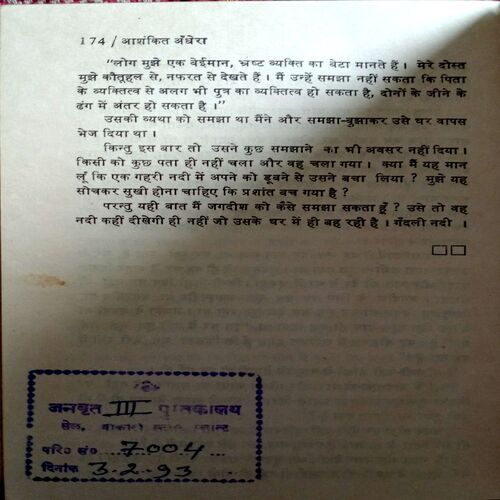 174 / आशंकित अँधेरा
“लोग मुझे एक बेईमान, भ्रष्ट व्यक्ति का बेटा मानते हैं । मेरे दोस्त
मुझे कौतूहल से, नफरत से देखते हैं । मैं उन्हें समझा नहीं सकता कि पिता
के व्यक्तित्व से अलग भी पुत्र का व्यक्तित्व हो सकता है, दोनों के जीने के
ढंग में अंतर हो सकता है ।”
उसकी व्यथा को समझा था मैंने और समझा-बुझाकर उसे घर वापस
भेज दिया था ।
किन्तु इस बार तो उसने कुछ समझाने का भी अवसर नहीं दिया ।
किसी को कुछ पता ही नहीं चला और वह चला गया । क्या मैं यह मान
लूँ कि एक गहरी नदी में अपने को डूबने से उसने बचा लिया ? मुझे यह
सोचकर सुखी होना चाहिए कि प्रशांत बच गया है ?
परन्तु यही बात मैं जगदीश को कैसे समझा सकता हूँ ? उसे तो वह
नदी कहीं दीखेगी ही नहीं जो उसके घर में ही बह रही है । गँदली नदी ।
जनवृत III पुस्तकालय
सेल, बोकारो
परि० सं० 7004
दिनांक 3.2.93